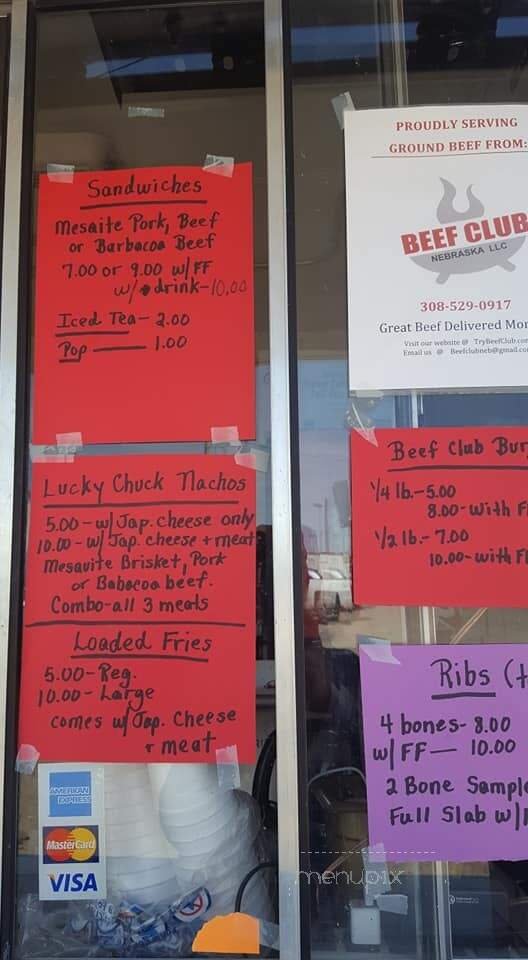 Sandwiches
Mesaite Pork, Beef
or Barbacoa Beef
7.00 or 9.00 w/FF
w/ drink-10,00
Iced Tea- 2.00
Pop - 1.00
Lucky Chuck Nachos
5.00-w/ Jap. cheese only
10.00-w/ Jap. cheese + meat
Mesquite Brisket, Pork
or Babacoa beef.
Combo-all 3 meats
Loaded Fries
5.00-Reg.
10.00-Large
comes w/ Jap. Cheese
+ meat
AMERICAN
EXPRESS
MasterCard
VISA
PROUDLY SERVING
GROUND BEEF FROM:
BEEF CLUB
NEBRASKA LLC
308-529-0917
Great Beef Delivered
Visit our website @ TryBeefClub.com
Email us @ Beefclubneb@gmail.co
Beef Club
1/4 lb.-5.00
8.00-with
1/2 lb.-7.00
10.00-with
Ribs
4 bones- 8.00
w/ FF- 10.00
2 Bone
Full Slab
menupix